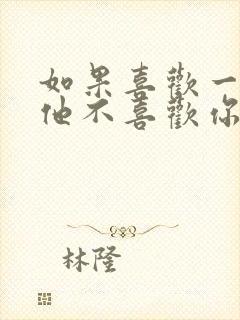 如果喜歡一
他不喜歡你
林隆